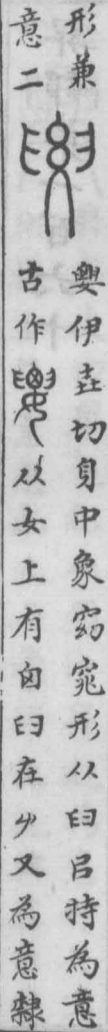 形兼
意二
伊垚切身中象窈窕形从𦥑吕持為意
古作从女上有囟𦥑在又為意隸